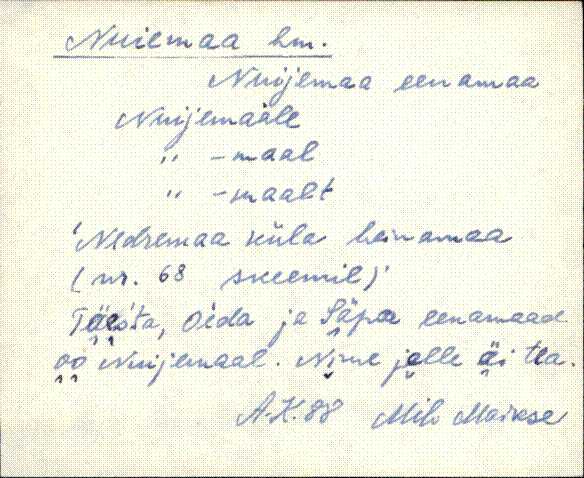 Nuiemaa hm.
Nuijemaa eenamaa
Nuijemaale
" -maal
" -maalt
'Nedremaa küla heinamaa
(nr. 68 skeemil)'
Oida ja Säpa eenamaad
oo Nuijemaal. Nime jelle äi tea.
A.K. 88 Milo Mairese